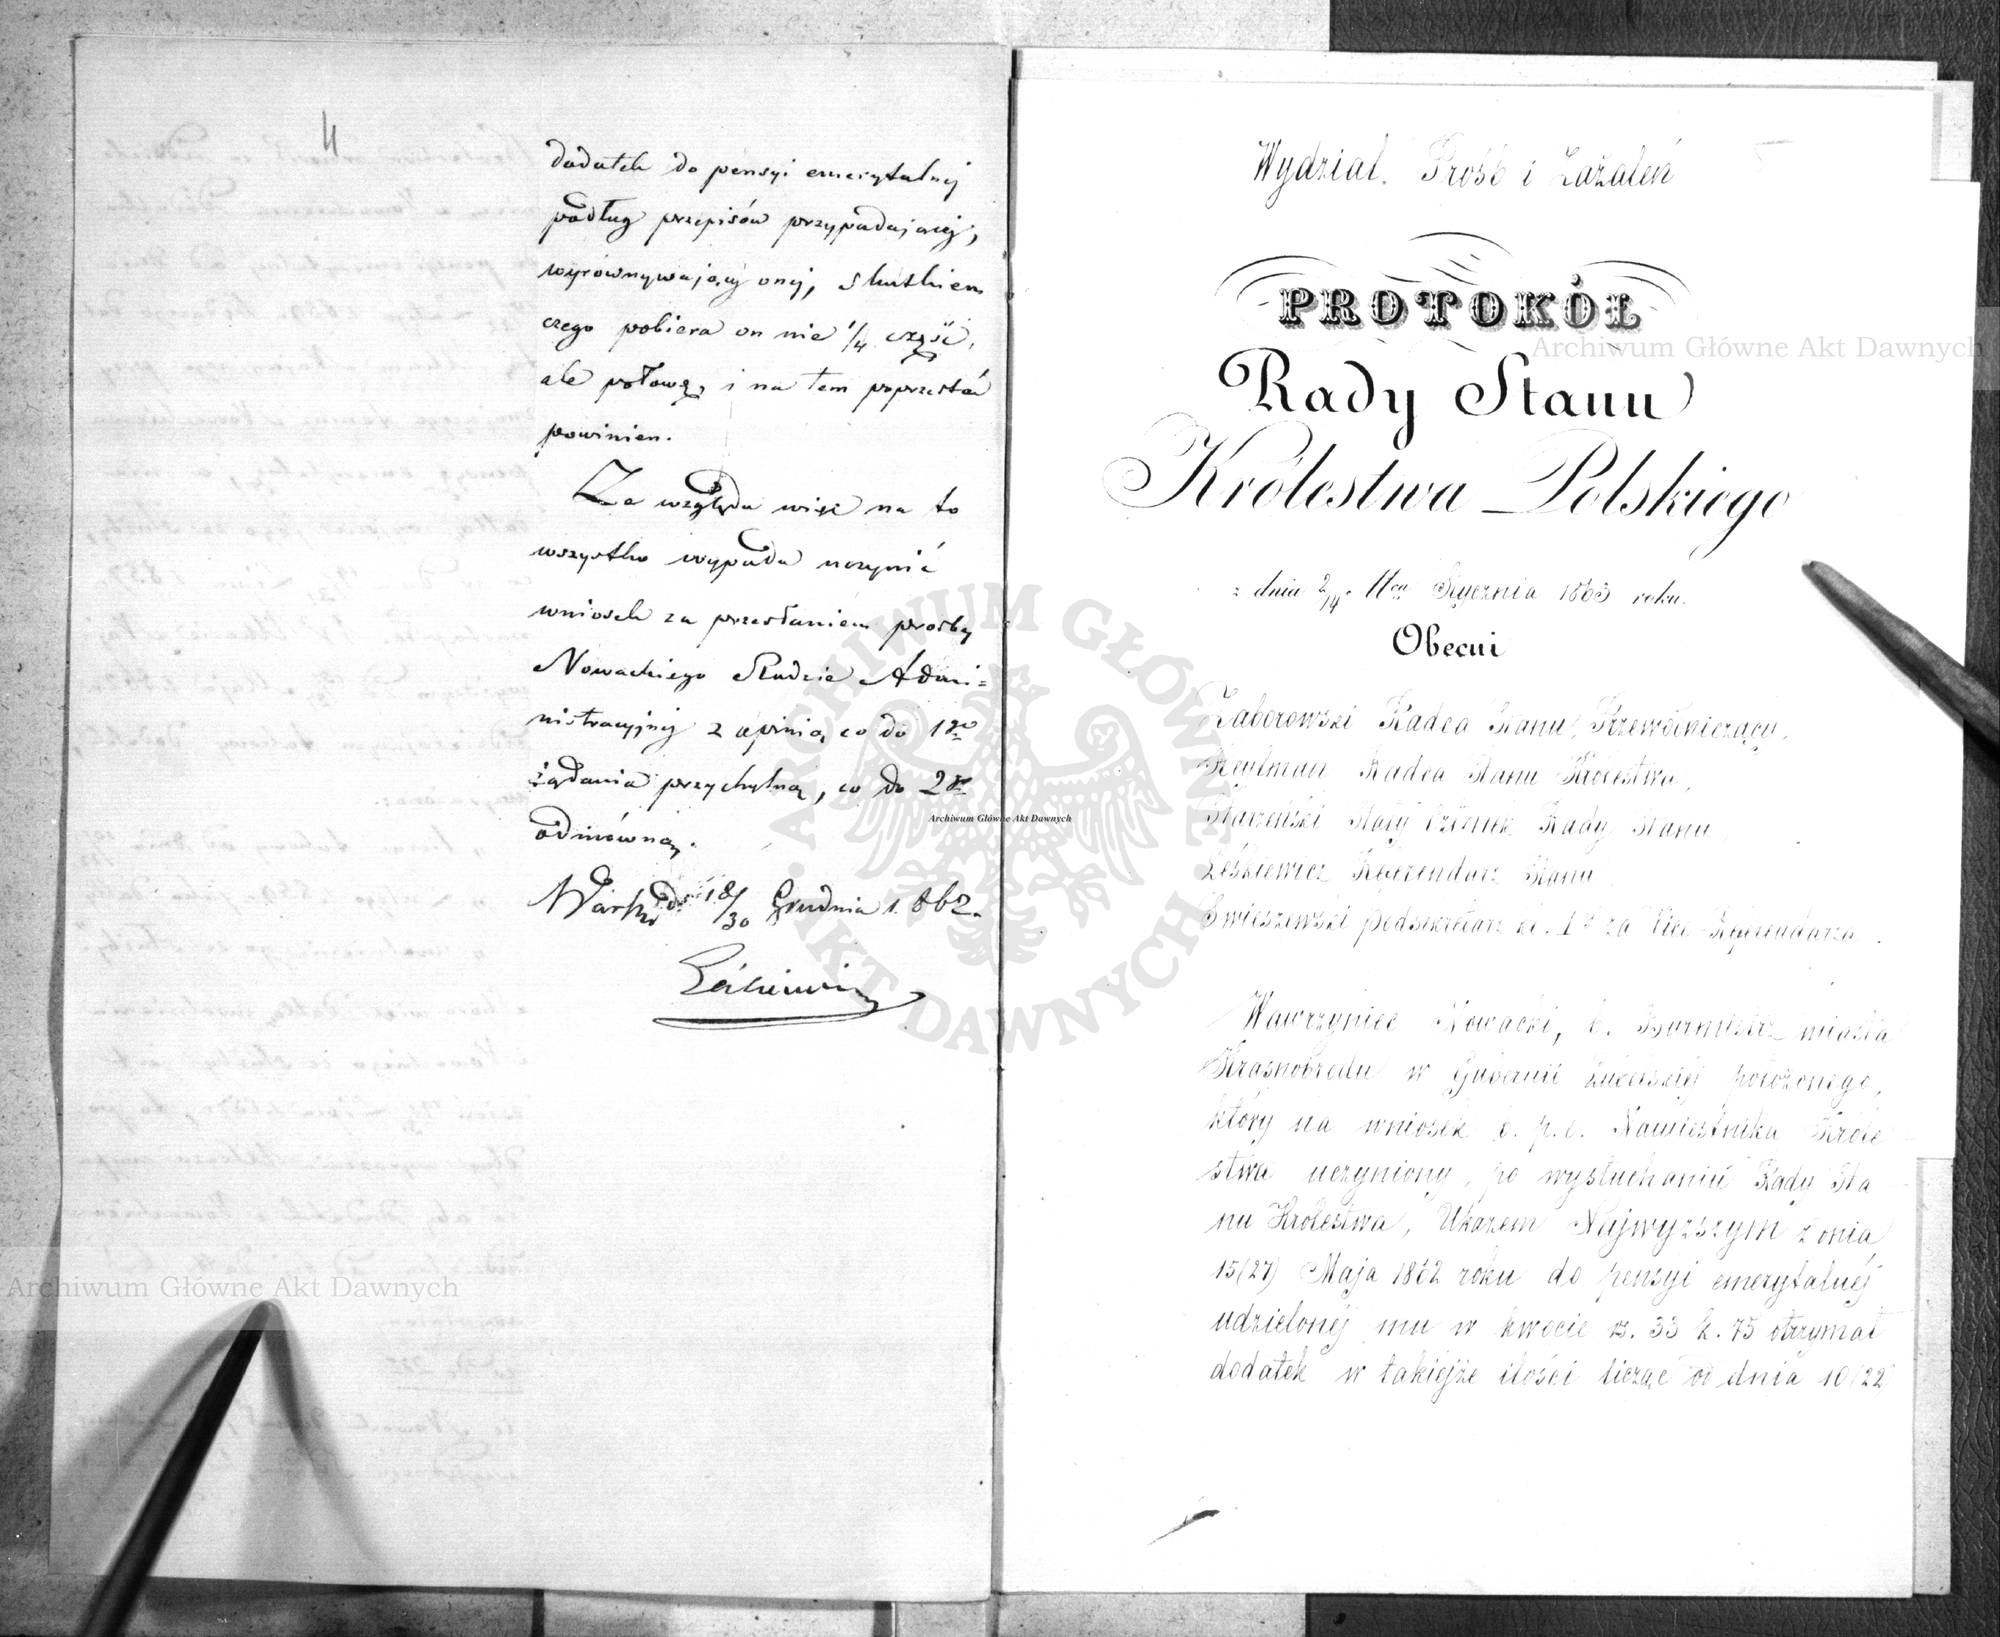 4
dodatek do pensyi emerytalnej
podług przepisów przypadającej,
wyrównywający onej, skutkiem
czego pobiera on nie 1/4 część,
ale połowę, i na tem poprzestać
powinien.
Ze względu więc na to
wszystko wypada uczynić
wniosek za przesłaniem prośby
Nowackiego Radzie Admi=
nistracyjnej z opinią co do 1go
żądania przychylną, co do 2go
odmówną.
Warsz. d. 18/30 Grudnia 1862.
Leśkiewicz
Wydział Próśb i Zażaleń
5
PROTOKÓŁ
Rady Stanu
Królestwa Polskiego
z dnia 2/14 Mca Stycznia 1863 roku.
Obecni
Zaborowski Radca Stanu, Przewodniczący,
Heylman Radca Stanu Królestwa,
Starzeński Stały Członek Rady Stanu,
Leśkiewicz Referendarz Stanu
Ewieszewski podsekretarz kl. 1ej za Vice-Referendarza.
Wawrzyniec Nowacki, b. Burmistrz miasta
Krasnobrodu w Gubernii Lubelskiej położonego,
który na wniosek b. p. o. Namiestnika Króle
stwa uczyniony, po wysłuchaniu Rady Sta
nu Królestwa, Ukazem Najwyższym z dnia
15/27 Maja 1862 roku do pensyi emerytalnej
udzielonej mu w kwocie rs. 33 k. 75 otrzymał
dodatek w takiejże ilości licząc od dnia 10/22
Archiwum Główne Akt Dawnych
Archiwum Główne Akt Dawnych
Archiwum Główne Akt Dawnych
ARCHIWUM GŁÓWNE AKT DAWNYCH